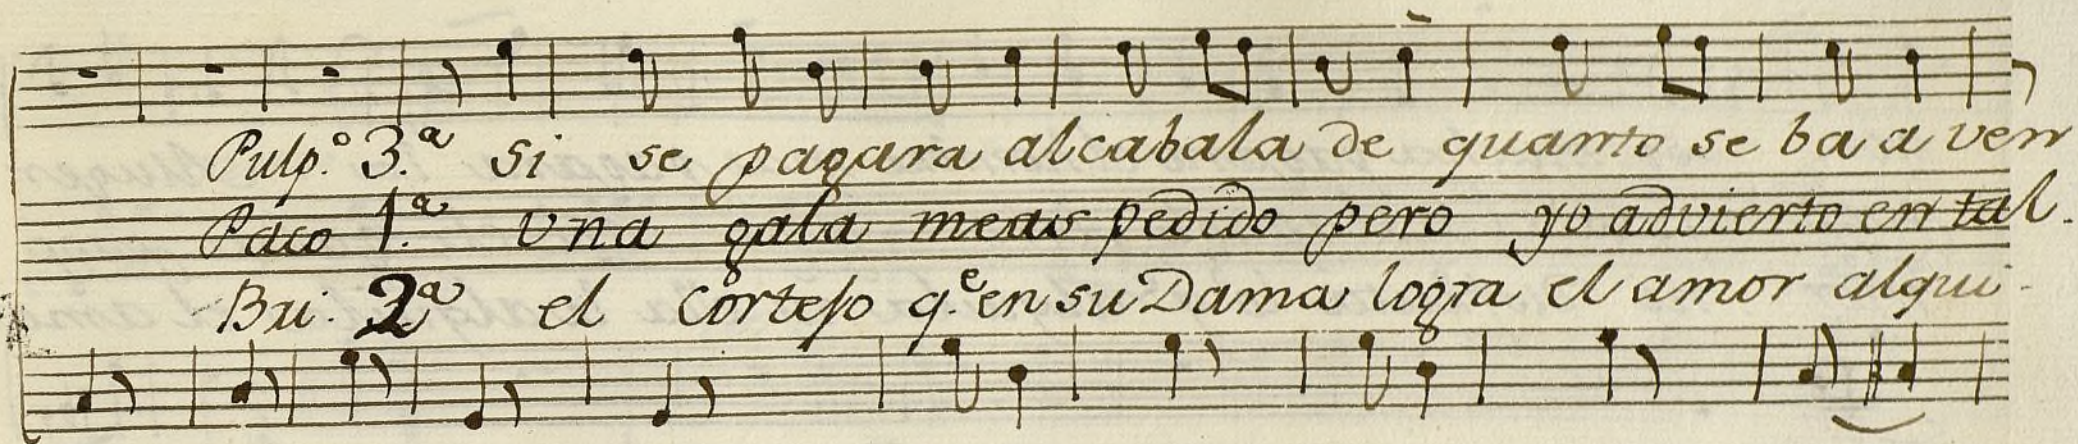 Pulp.º 3.ª si se pagara alcabala de quanto se ba a ven
Paco 1.ª una gala meas pedido pero yo advierto en tal.
Bri. 2ª el Cortejo q.e en su Dama logra el amor alqui-